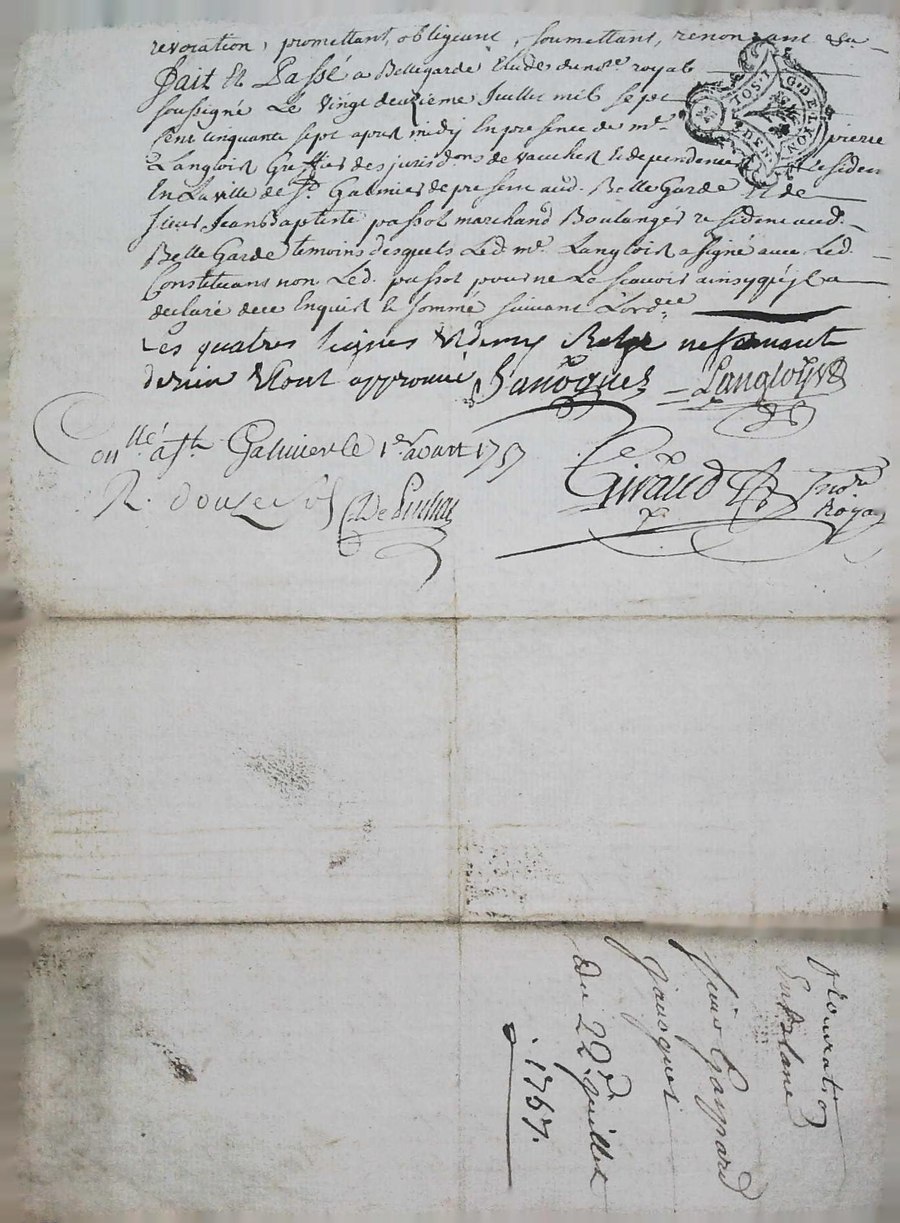 revocation, promettant, obligeant, soumettant, renonçant &a
Fait Et Passé a Bellegarde Etude du no.re royal
soussigné Le Vingt deuxieme Juillet mil sept
Cent cinquante sept apres midy En presence de m.e pierre
Langlois Greffier des jurisd.ons de Vauches & dependances Resident
En La ville de S.t Galmier de present aud. Belle Garde Et de
sieur Jean Baptiste passot marchand Boulanger resident aud.
Belle Garde temoins desquels Led. m.e Langlois a signé avec Led.
Constituans non Led. passot pour ne Le scavoir ainsy qu'il a
declaré de ce Enquis & sommé suivant L'ord.ce
Les quatres lignes & demy
de rien & sont approuvé Javogues Langloys
Con.llé a S.t Galmier le 1.er aoust 1757
R. douze sols
Giraud no.re Royal
1.SOL
4.DEN
G.DE LYON
procuration
En Blanc
sieur Gaspard
Javogues
du 22.e juillet
1757.